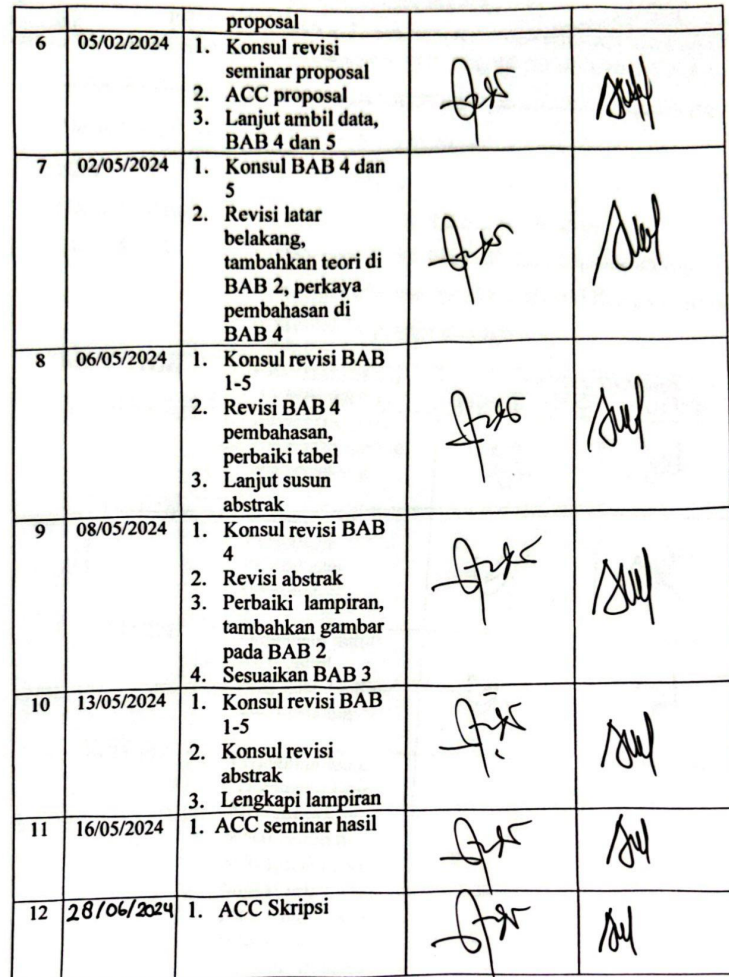 proposal
6 05/02/2024 1. Konsul revisi
seminar proposal
2. ACC proposal
3. Lanjut ambil data,
BAB 4 dan 5
7 02/05/2024 1. Konsul BAB 4 dan
5
2. Revisi latar
belakang,
tambahkan teori di
BAB 2, perkaya
pembahasan di
BAB 4
8 06/05/2024 1. Konsul revisi BAB
1-5
2. Revisi BAB 4
pembahasan,
perbaiki tabel
3. Lanjut susun
abstrak
9 08/05/2024 1. Konsul revisi BAB
4
2. Revisi abstrak
3. Perbaiki lampiran,
tambahkan gambar
pada BAB 2
4. Sesuaikan BAB 3
10 13/05/2024 1. Konsul revisi BAB
1-5
2. Konsul revisi
abstrak
3. Lengkapi lampiran
11 16/05/2024 1. ACC seminar hasil
12 28/06/2024 1. ACC Skripsi